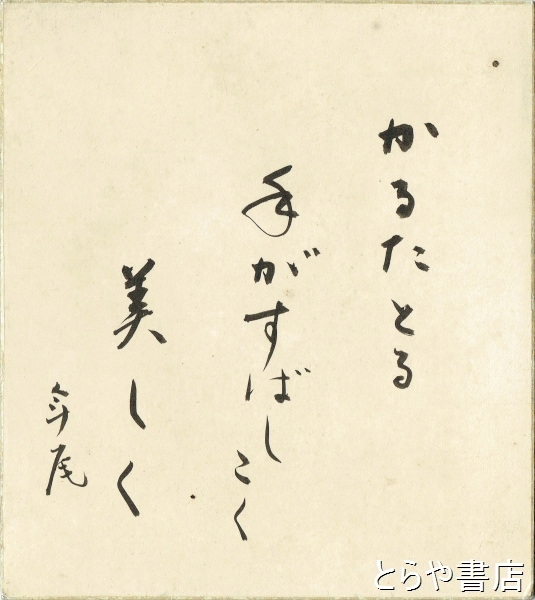 かるたとる
手がすばしこく
美しく
とらや書店